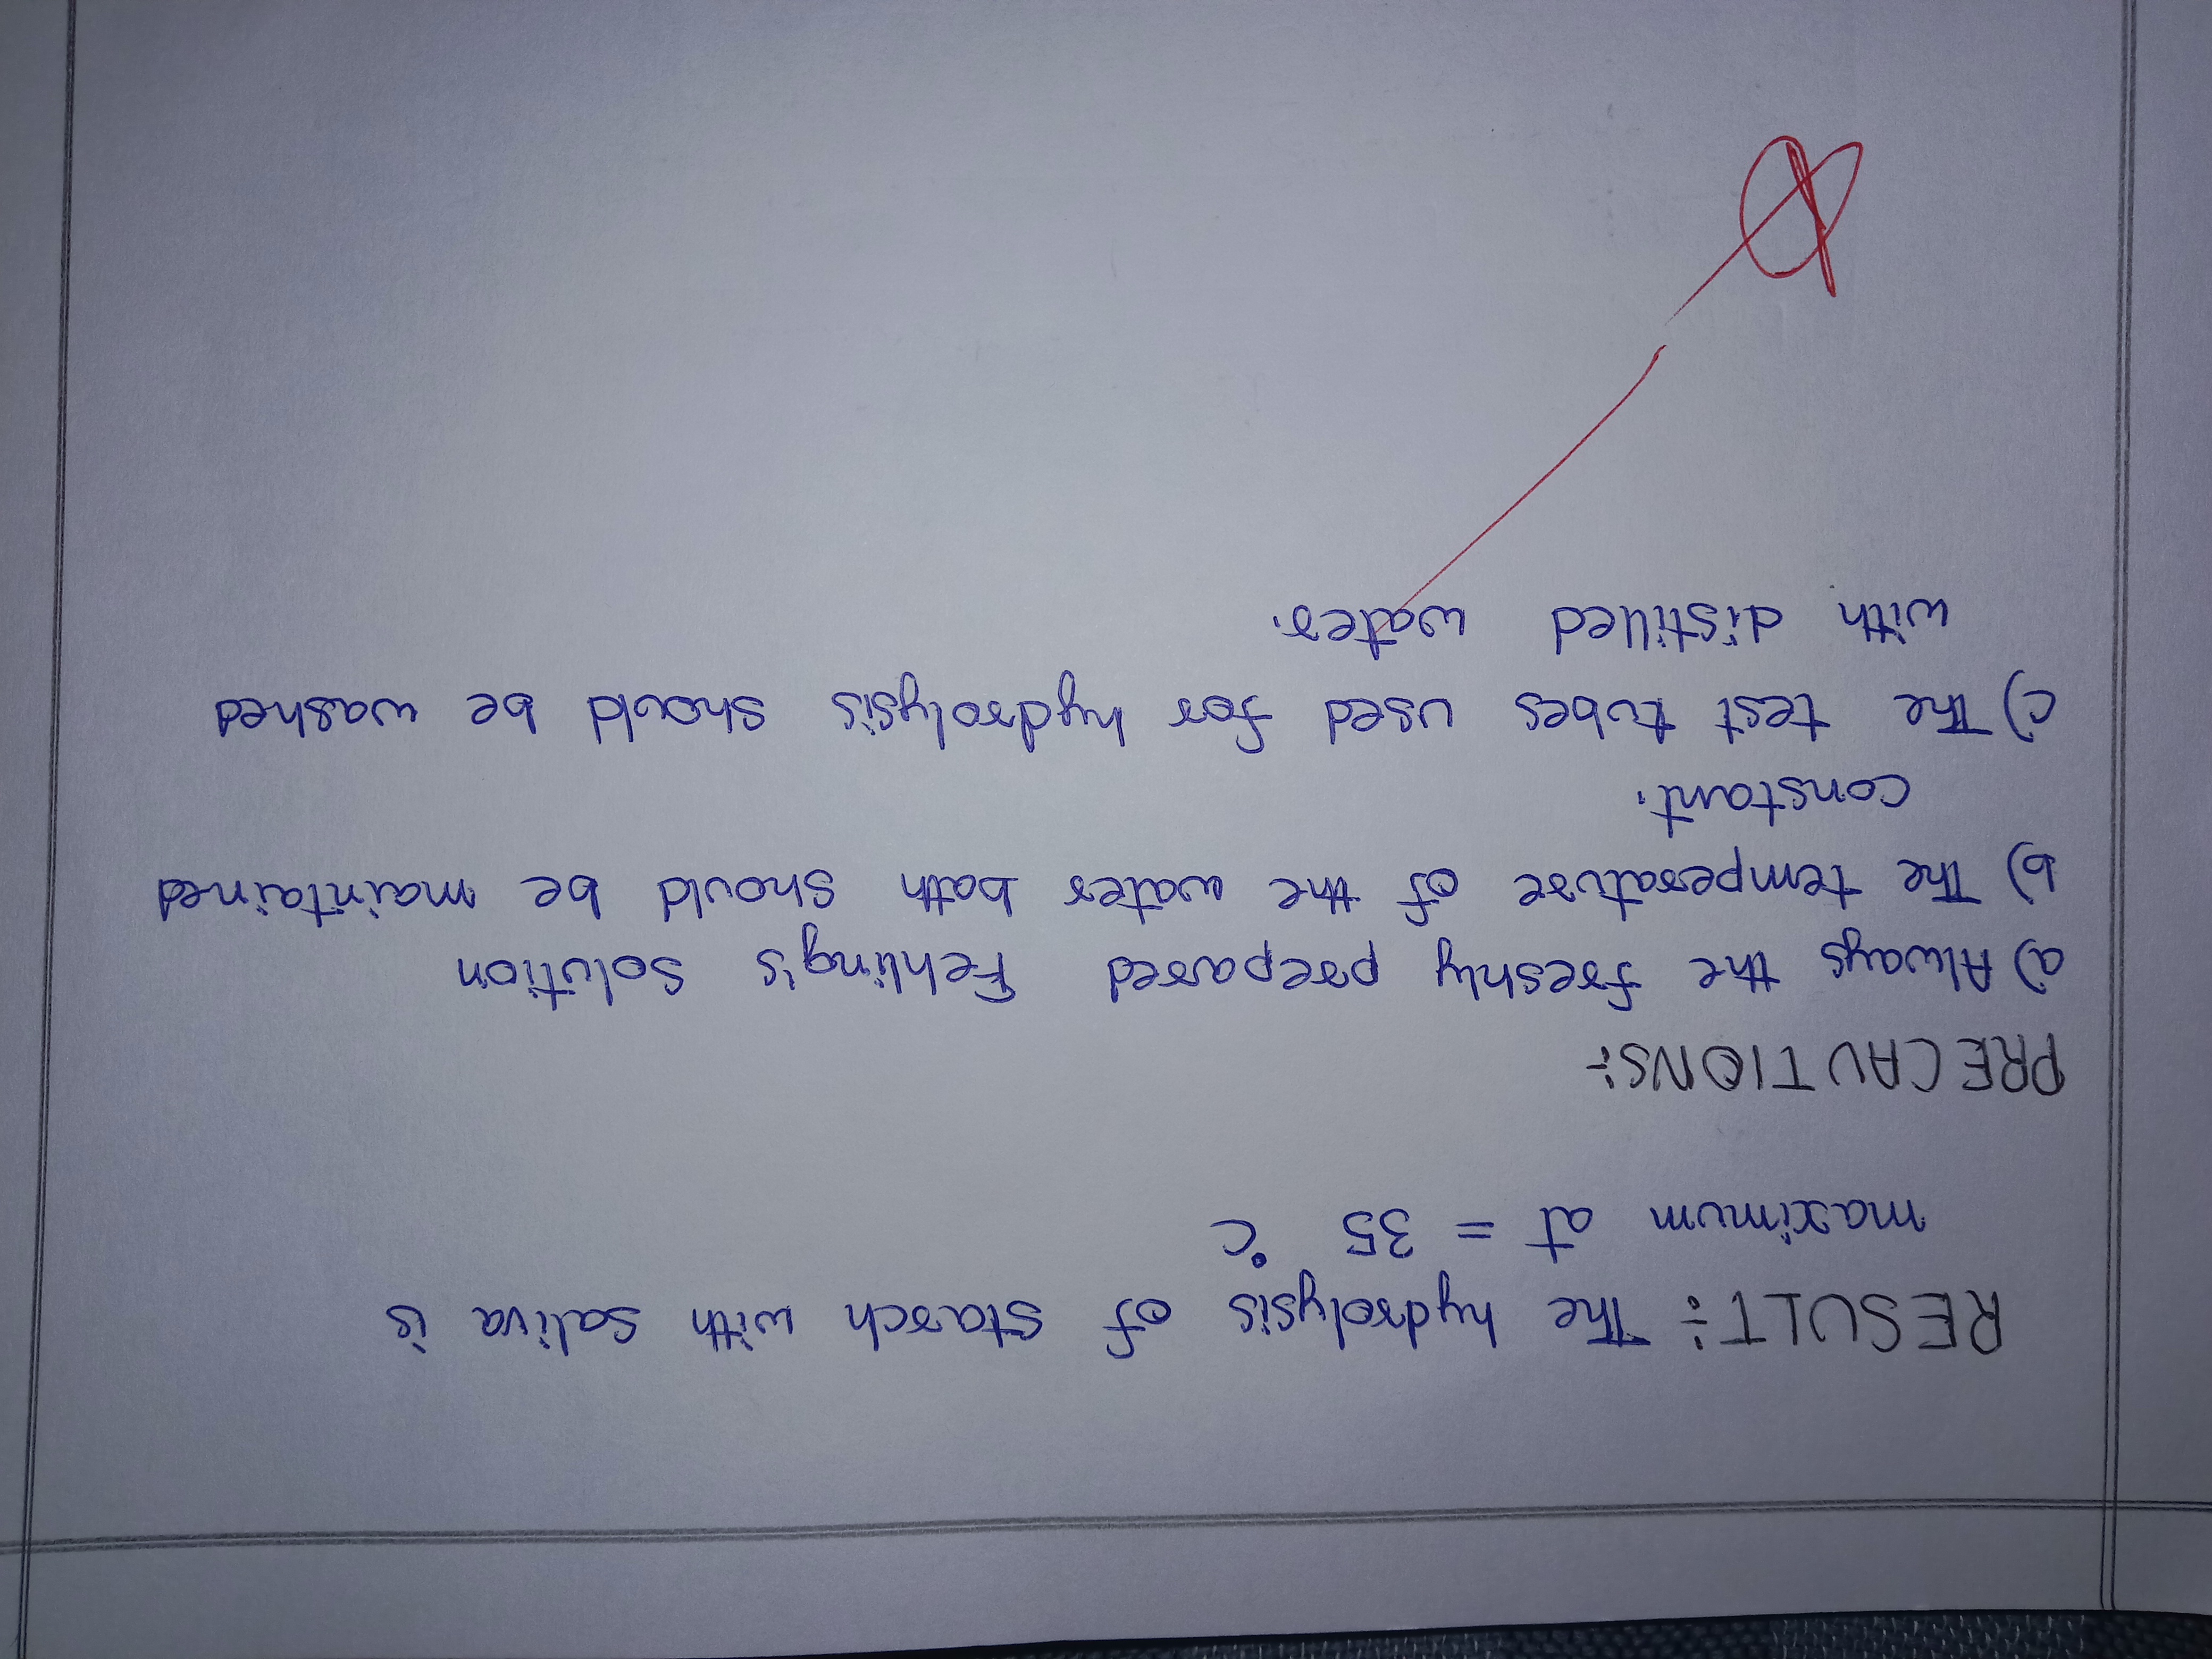 RESULT:- The hydrolysis of starch with saliva is
maximum at = 35 °C
PRECAUTIONS:-
a) Always the freshly prepared Fehling's solution
b) The temperature of the water bath should be maintained
constant.
c) The test tubes used for hydrolysis should be washed
with distilled water.